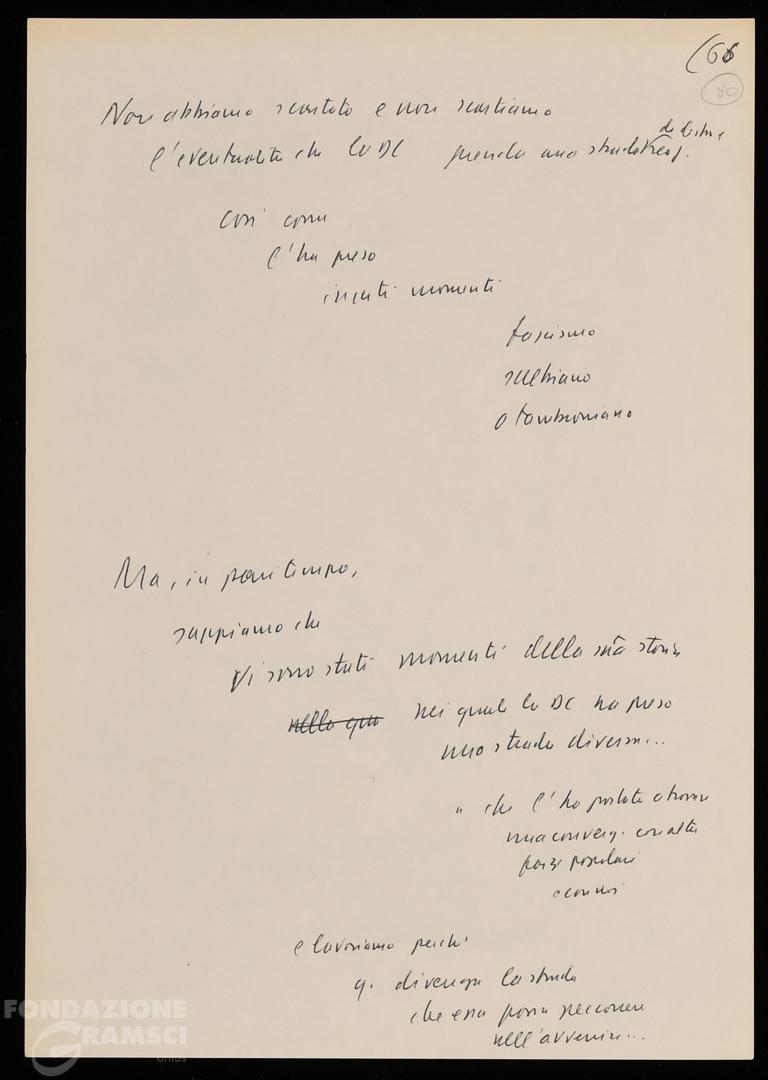 (66
80
Non abbiamo scartato e non scartiamo
di destra e
l'eventualità che la DC prenda una strada reaz.
così come
l'ha preso
in certi momenti
fascismo
scelbiano
o tambroniano
Ma, in pari tempo,
sappiamo che
vi sono stati momenti della sua storia
nella qua nei quali la DC ha preso
una strada diversa...
" che l'ha portata a trovare
una converg. con altre
forze popolari
e con noi
e lavoriamo perché
q. divenga la strada
che essa possa percorrere
nell'avvenire...
FONDAZIONE
GRAMSCI
onlus